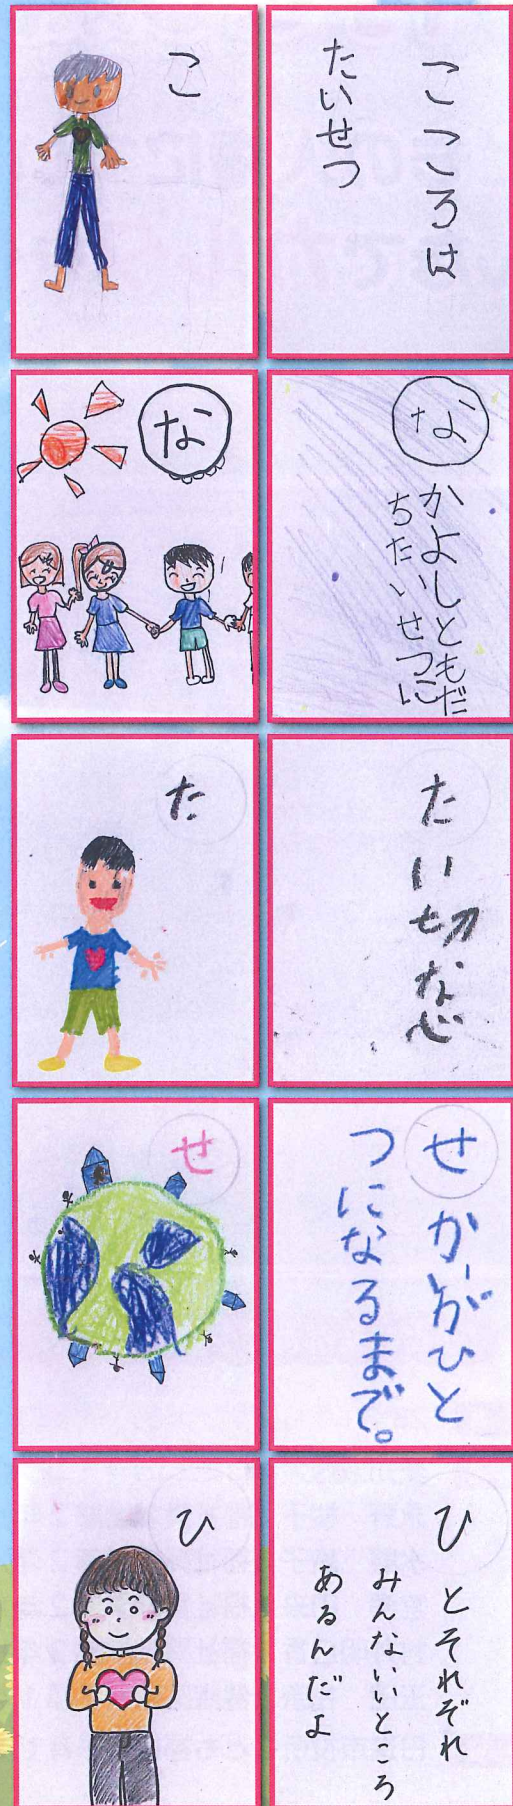 こ
こころは
たいせつ
な
なかよしともだ
ちたいせつに
た
たい切な心
せ
せかいがひと
つになるまで。
ひ
ひとそれぞれ
みんないいところ
あるんだよ